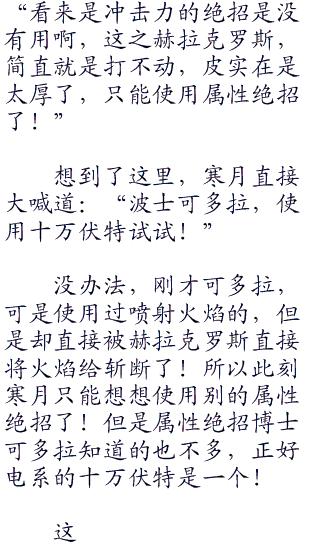 “看来是冲击力的绝招是没
有用啊，这之赫拉克罗斯，
简直就是打不动，皮实在是
太厚了，只能使用属性绝招
了！”
想到了这里，寒月直接
大喊道：“波士可多拉，使
用十万伏特试试！”
没办法，刚才可多拉，
可是使用过喷射火焰的，但
是却直接被赫拉克罗斯直接
将火焰给斩断了！所以此刻
寒月只能想想使用别的属性
绝招了！但是属性绝招博士
可多拉知道的也不多，正好
电系的十万伏特是一个！
这